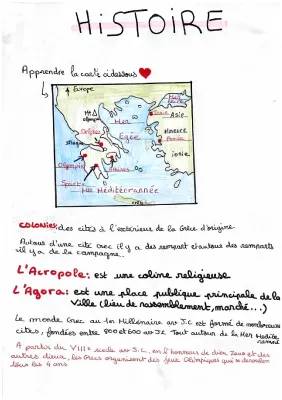 HISTOIRE
Apprendre la carte ci dessous
Europe
Mt
Olympe
Mer
Egée
Troie
Asie
Mineure
Ionie
Delphes
Olympie
Sparte
Mer Méditerranée
Crète
COLONIES: des cités à l'extérieur de la Grèce d'origine.
Autour d'une cité grec il y a des rempart et autour des remparts
il y a de la campagne.
L'Acropole: est une coline religieuse
L'Agora: est une place publique principale de la
Ville (lieu de rassemblement, marché...)
Le monde Grec au 1er Millénaire av J.C est formé de nombreuses
cités, fondées entre 800 et 600 av JC Tout autour de la Mer Médite
rannée
A partir du VIIIe siècle av J.C, en l'honneur de dieu Zeus et des
autres dieux, les Grecs organisent des jeux Olympiques qui se déroulent
tous les 4 ans